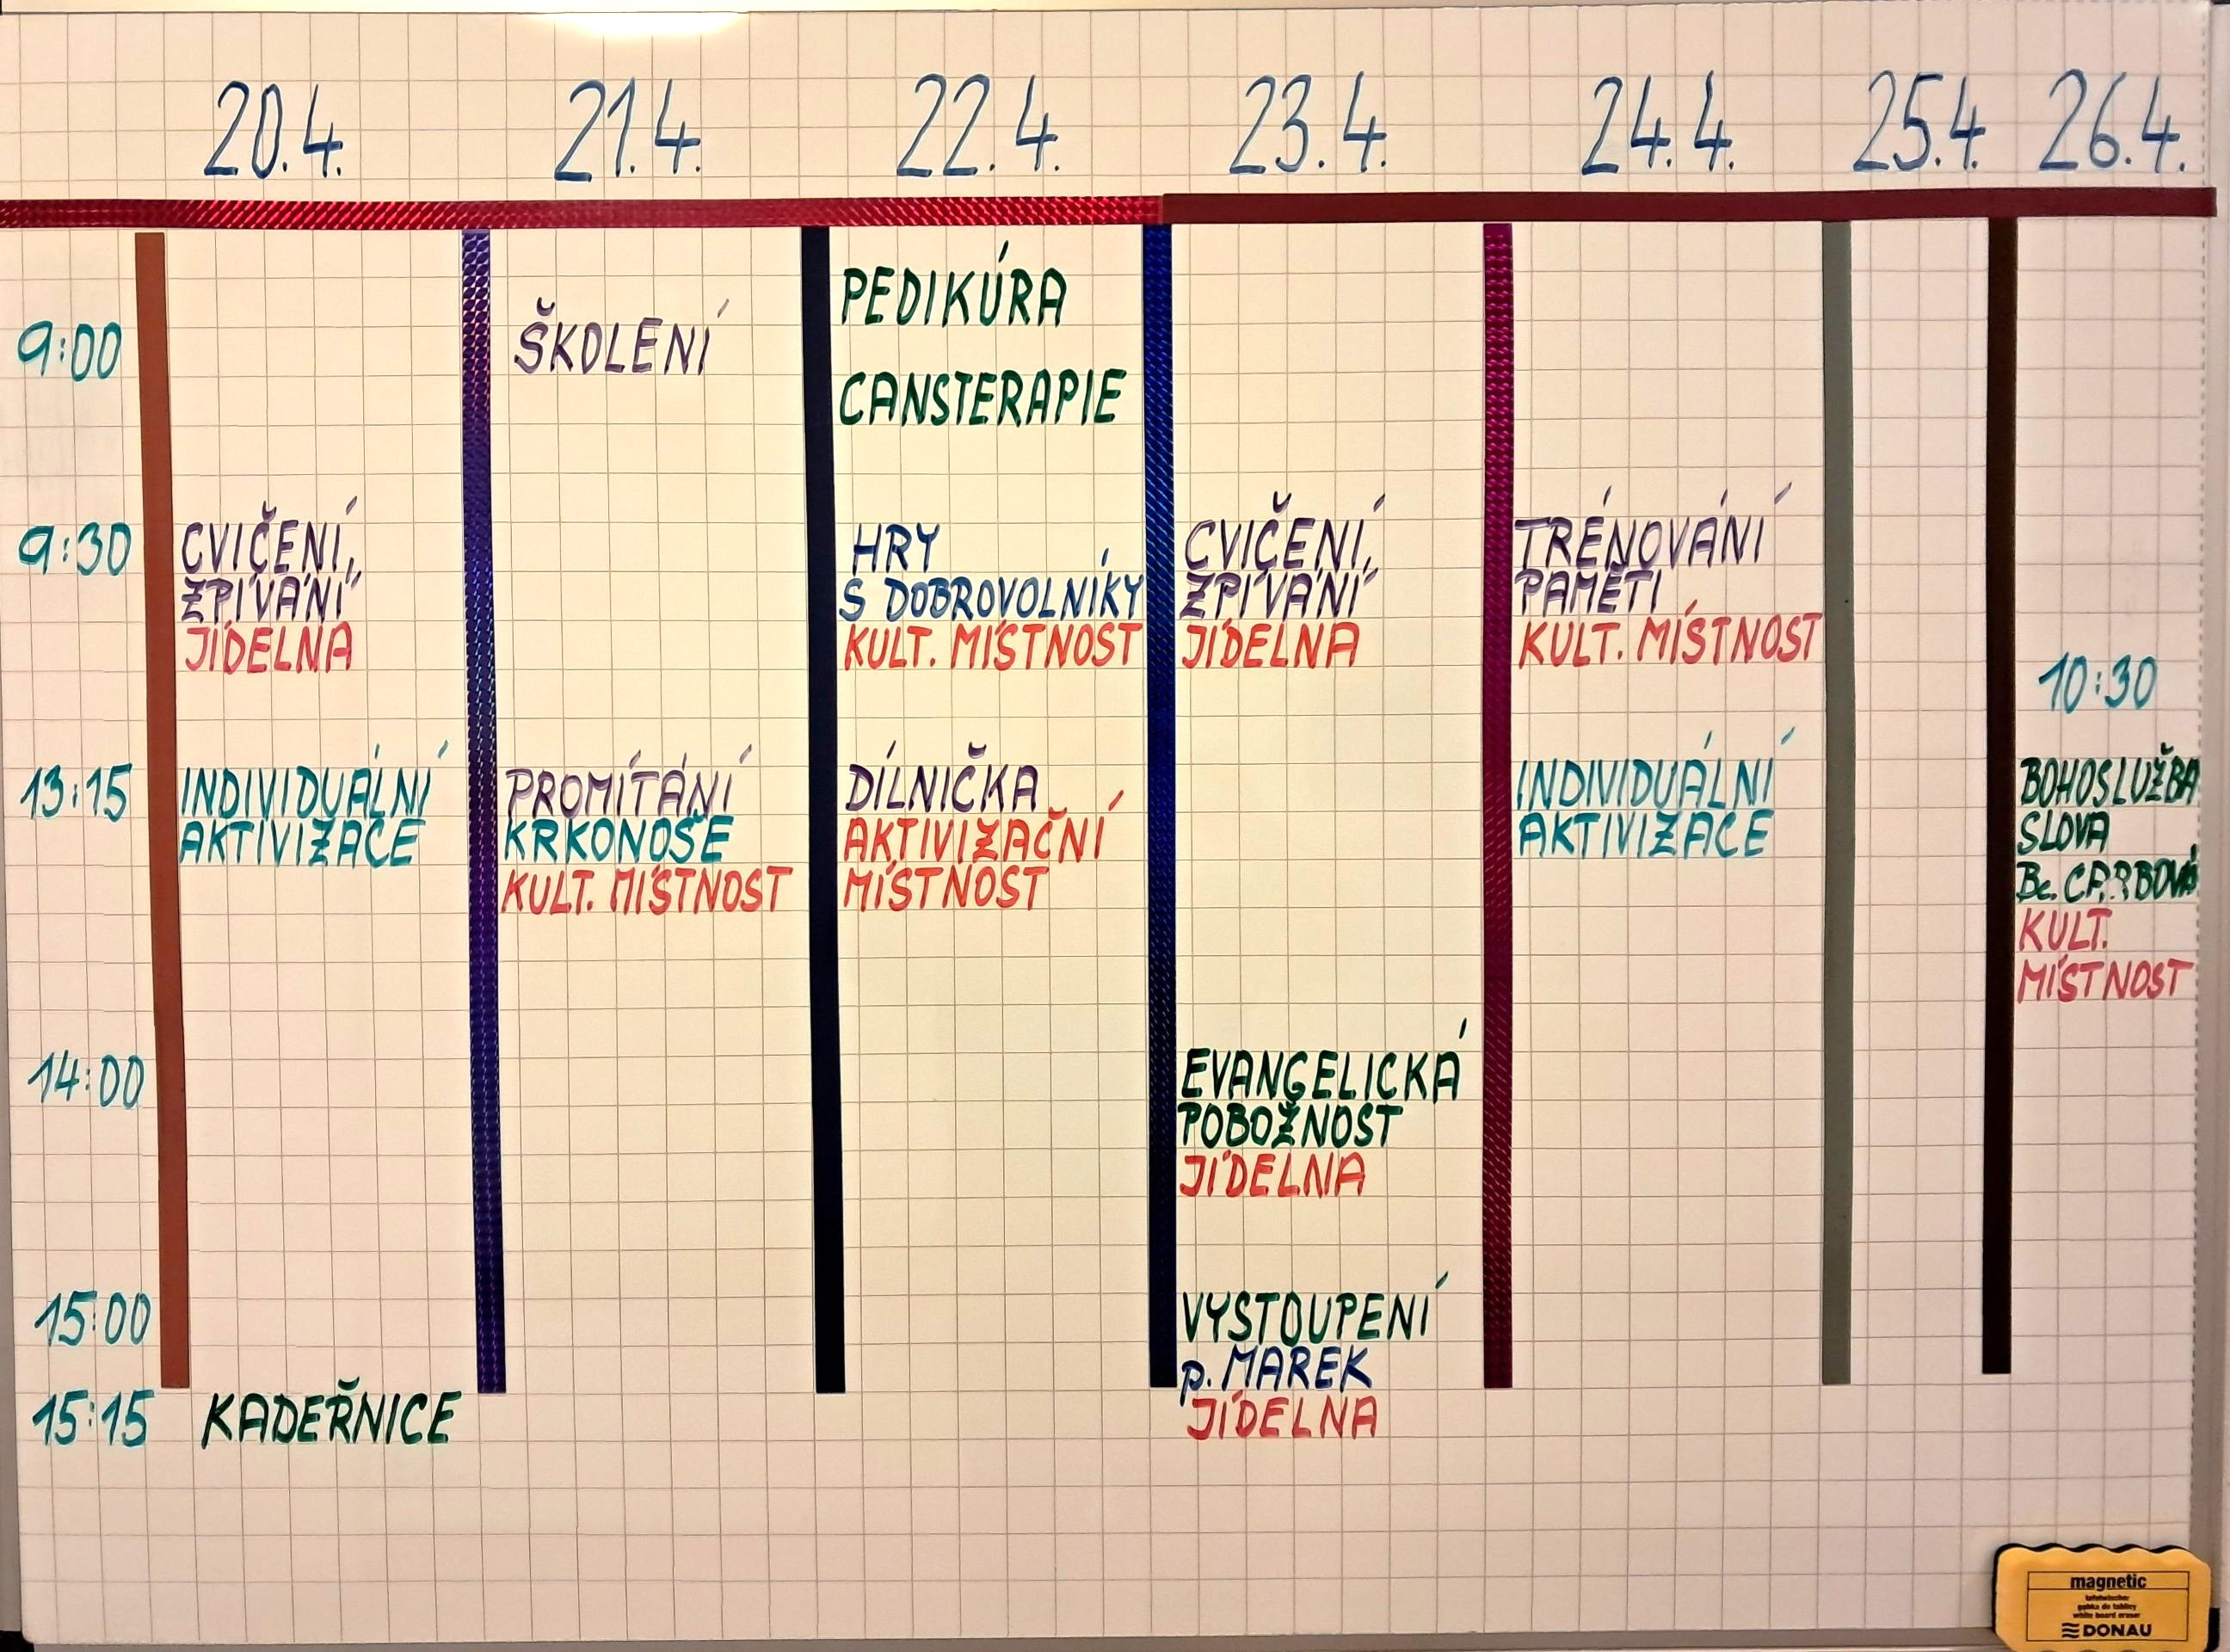 20.4. 21.4. 22.4. 23.4. 24.4. 25.4. 26.4.
9:00
ŠKOLENÍ
PEDIKÚRA
CANSTERAPIE
9:30
CVIČENÍ,
ZPÍVÁNÍ
JÍDELNA
HRY
S DOBROVOLNÍKY
KULT. MÍSTNOST
CVIČENÍ,
ZPÍVÁNÍ
JÍDELNA
TRÉNOVÁNÍ
PAMĚTI
KULT. MÍSTNOST
10:30
BOHOSLUŽBA
SLOVA
Bc.
KULT.
MÍSTNOST
13:15
INDIVIDUÁLNÍ
AKTIVIZACE
PROMÍTÁNÍ
KRKONOŠE
KULT. MÍSTNOST
DÍLNIČKA
AKTIVIZAČNÍ
MÍSTNOST
INDIVIDUÁLNÍ
AKTIVIZACE
14:00
EVANGELICKÁ
POBOŽNOST
JÍDELNA
15:00
VYSTOUPENÍ
p. MAREK
JÍDELNA
15:15
KADEŘNICE
magnetic
tafelwischer
gąbka do tablicy
white board eraser
DONAU